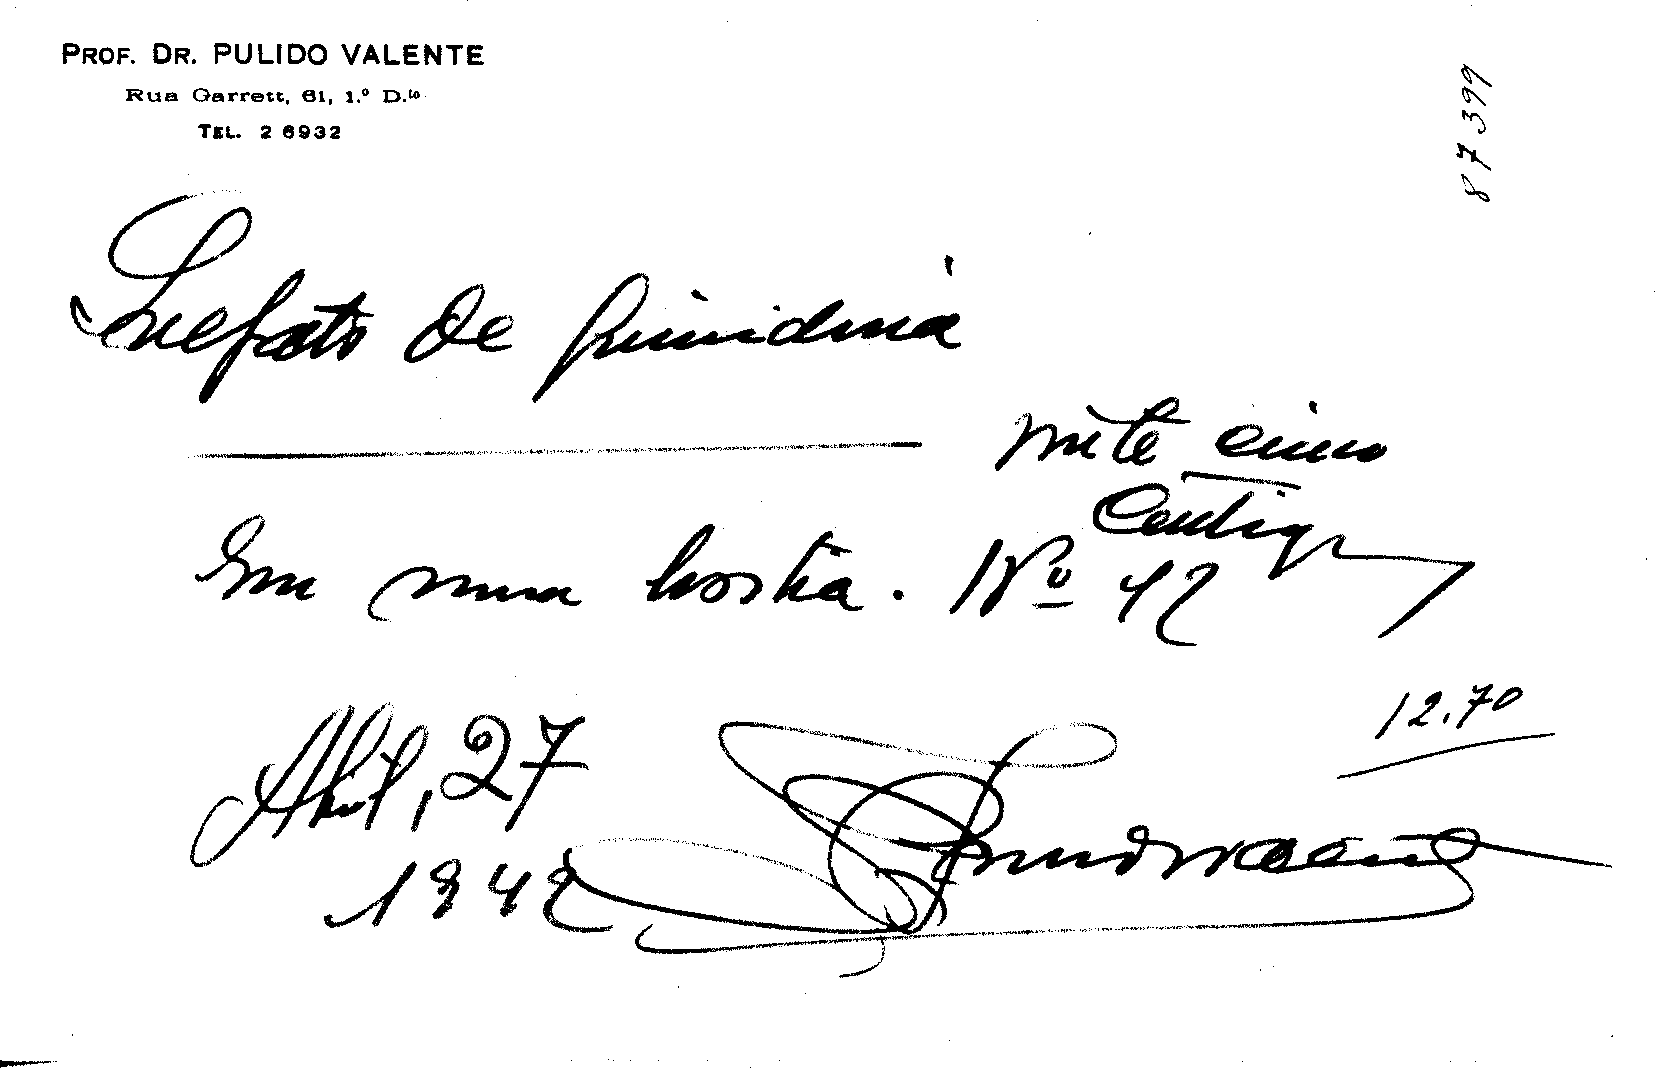 PROF. DR. PULIDO VALENTE
Rua Garrett, 61, 1.º D.to
TEL. 2 6932
87399
Sulfato de quinidina
vinte cinco
centigr
Em uma hostia. Nº 42
Abril, 27
1942
12.70